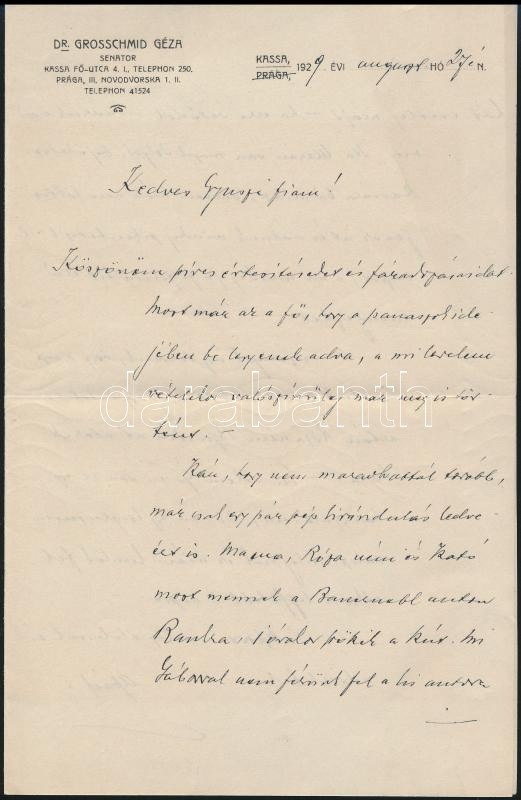 DR. GROSSCHMID GÉZA
SENATOR
KASSA FŐ-UTCA 4. I., TELEPHON 250.
PRÁGA, III. NOVODVORSKA 1. II.
TELEPHON 41524
KASSA,
PRÁGA, 1929. ÉVI august HÓ 27én.
Kedves Gyuszi fiam!
Köszönöm szives értesitésedet és fáradozásaidat.
Most már az a fő, hogy a panaszok ide-
jében be legyenek adva, a mi
valószinűleg már meg is tör-
tént. –
Kár, hogy nem maradhattál tovább,
már csak egy pár szép kirándulás kedve-
ért is. Mama, Róza néni és Kató
most mennek a autón
a kút. Mi
Gáborral nem férünk fel a kis autóra
darabanth